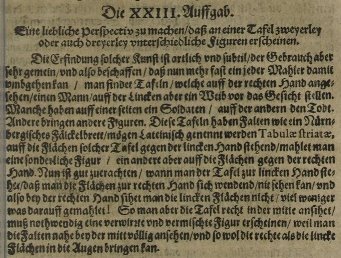 Die XXIII. Auffgab.
Eine liebliche Perspectiv zu machen/ daß an einer Tafel zweyerley
oder auch dreyerley vnterschiedliche Figuren erscheinen.
Die Erfindung solcher Kunst ist artlich vnd subtil/ der Gebrauch aber
sehr gemein/ vnd also beschaffen/ daß nun mehr fast ein jeder Mahler damit
vmbgehen kan/ man findet Tafeln/ welche auff der rechten Hand ange-
sehen/ einen Mann/ auff der Lincken aber ein Weib vor das Gesicht stellen.
Manche haben auff einer seiten ein Soldaten/ auff der andern den Todt.
Andere bringen andere Figuren. Diese Tafeln haben Falten wie ein Nürn-
bergisches Fäickelbrett/ mögen Lateinisch genennt werden Tabulæ striatæ,
auff die Flächen solcher Tafel gegen der lincken Hand stehend/ mahlet man
eine sonderliche Figur/ ein andere aber auff die Flächen gegen der rechten
Hand. Nun ist gut zuerachten/ wann man der Tafel zur lincken Hand ste-
he/ daß man die Flächen zur rechten Hand sich wendend/ nie sehen kan/ vnd
also bey der rechten Hand sihet man die lincken Flächen nicht/ viel weniger
was darauff gemahlet! So man aber die Tafel recht in der mitte ansihet/
muß nothwendig eine verwirrte vnd vermischte Figur erscheinen/ weil man
die Falten nahe bey der mitt völlig ansehen/ vnd so wol die rechte als die lincke
Flächen in die Augen bringen kan.